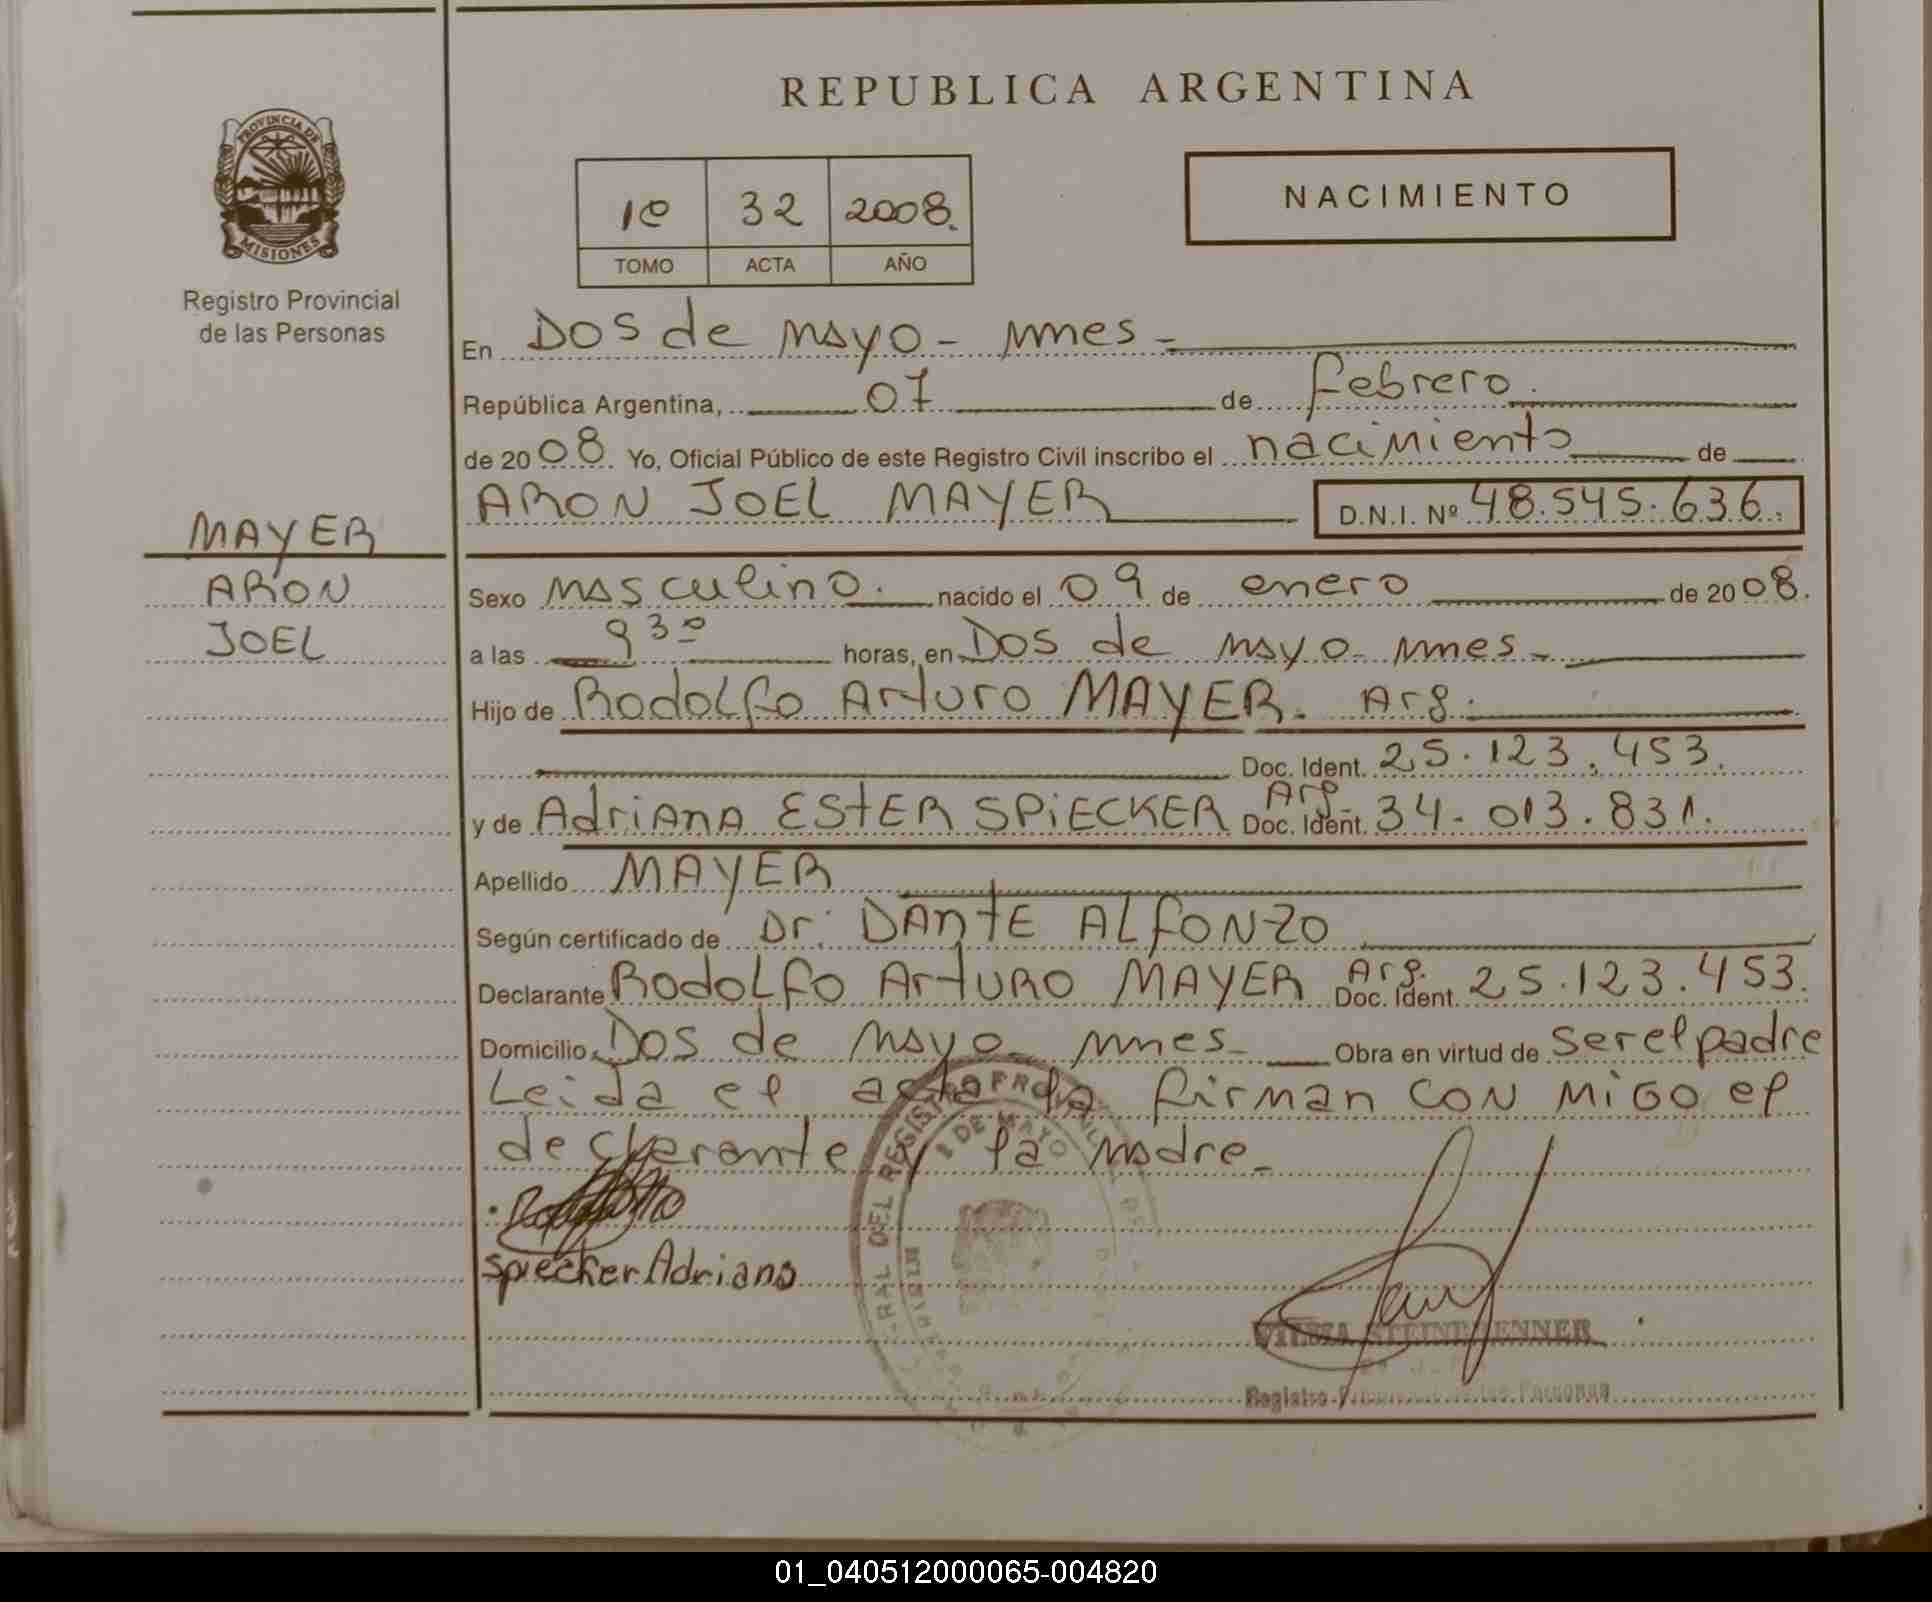 REPUBLICA ARGENTINA
PROVINCIA DE
MISIONES
Registro Provincial
de las Personas
1º 32 2008.
TOMO ACTA AÑO
NACIMIENTO
En Dos de mayo - mnes -
República Argentina, 07 de febrero.
de 2008. Yo, Oficial Público de este Registro Civil inscribo el nacimiento de
ARON JOEL MAYER D.N.I. Nº 48.545.636.
MAYER
ARON
JOEL
Sexo masculino. nacido el 09 de enero de 2008.
a las 9 30 horas, en Dos de mayo - mnes -
Hijo de Rodolfo Arturo MAYER. Arg.
Doc. Ident. 25.123.453.
y de Adriana ESTER SPIECKER Arg. Doc. Ident. 34.013.831.
Apellido MAYER
Según certificado de Dr: DANTE ALFONZO
Declarante Rodolfo Arturo MAYER Arg. Doc. Ident. 25.123.453.
Domicilio Dos de mayo - mnes - Obra en virtud de ser el padre
Leida el acta la firman con migo el
declarante y la madre.
Spiecker Adriana
VILMA STEINBRENNER
Registro de las Personas
01_040512000065-004820